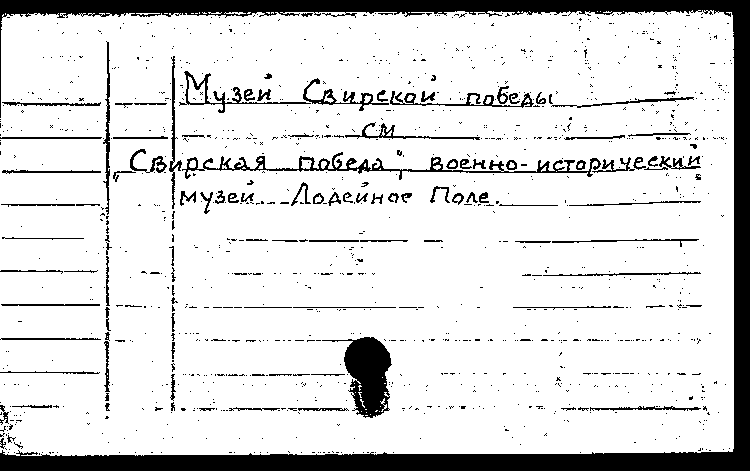 Музей Свирской победы
см
"Свирская победа", военно-исторический
музей. Лодейное Поле.